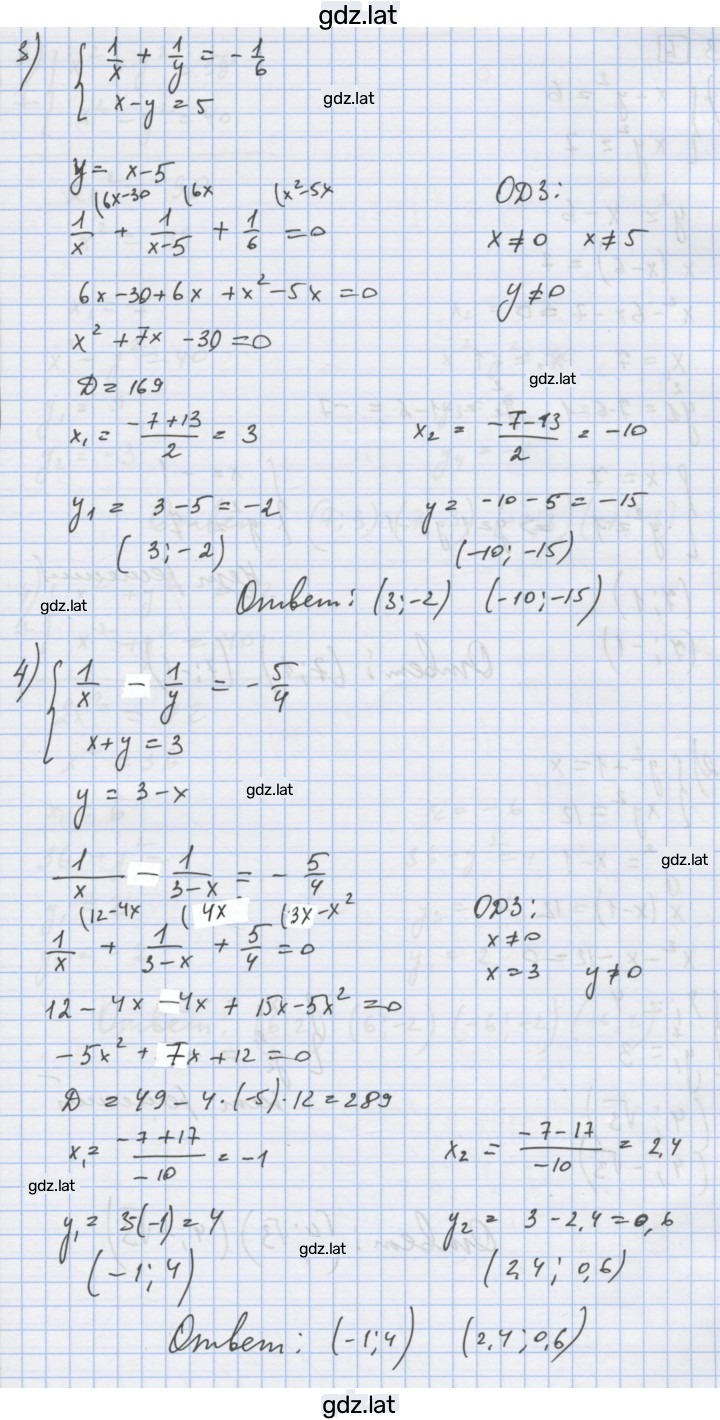 gdz.lat
3) { 1/x + 1/y = - 1/6
x - y = 5
gdz.lat
y = x-5
(6x-30 (6x (x²-5x
1/x + 1/(x-5) + 1/6 = 0
ОДЗ:
x ≠ 0 x ≠ 5
y ≠ 0
6x - 30 + 6x + x² - 5x = 0
x² + 7x - 30 = 0
gdz.lat
D = 169
x₁ = (-7+13)/2 = 3 x₂ = (-7-13)/2 = -10
y₁ = 3-5 = -2 y = -10-5 = -15
(3; -2) (-10; -15)
gdz.lat
Ответ: (3;-2) (-10;-15)
4) { 1/x - 1/y = - 5/4
x+y = 3
y = 3-x
gdz.lat
1/x - 1/(3-x) = - 5/4
gdz.lat
(12-4x (4x (3x-x²
1/x + 1/(3-x) + 5/4 = 0
ОДЗ:
x ≠ 0
x = 3 y ≠ 0
12 - 4x - 4x + 15x - 5x² = 0
-5x² + 7x + 12 = 0
D = 49 - 4·(-5)·12 = 289
x₁ = (-7+17)/-10 = -1 x₂ = (-7-17)/-10 = 2,4
gdz.lat
y₁ = 3(-1) = 4 y₂ = 3-2,4 = 0,6
gdz.lat
(-1; 4) (2,4; 0,6)
Ответ: (-1;4) (2,4; 0,6)
gdz.lat